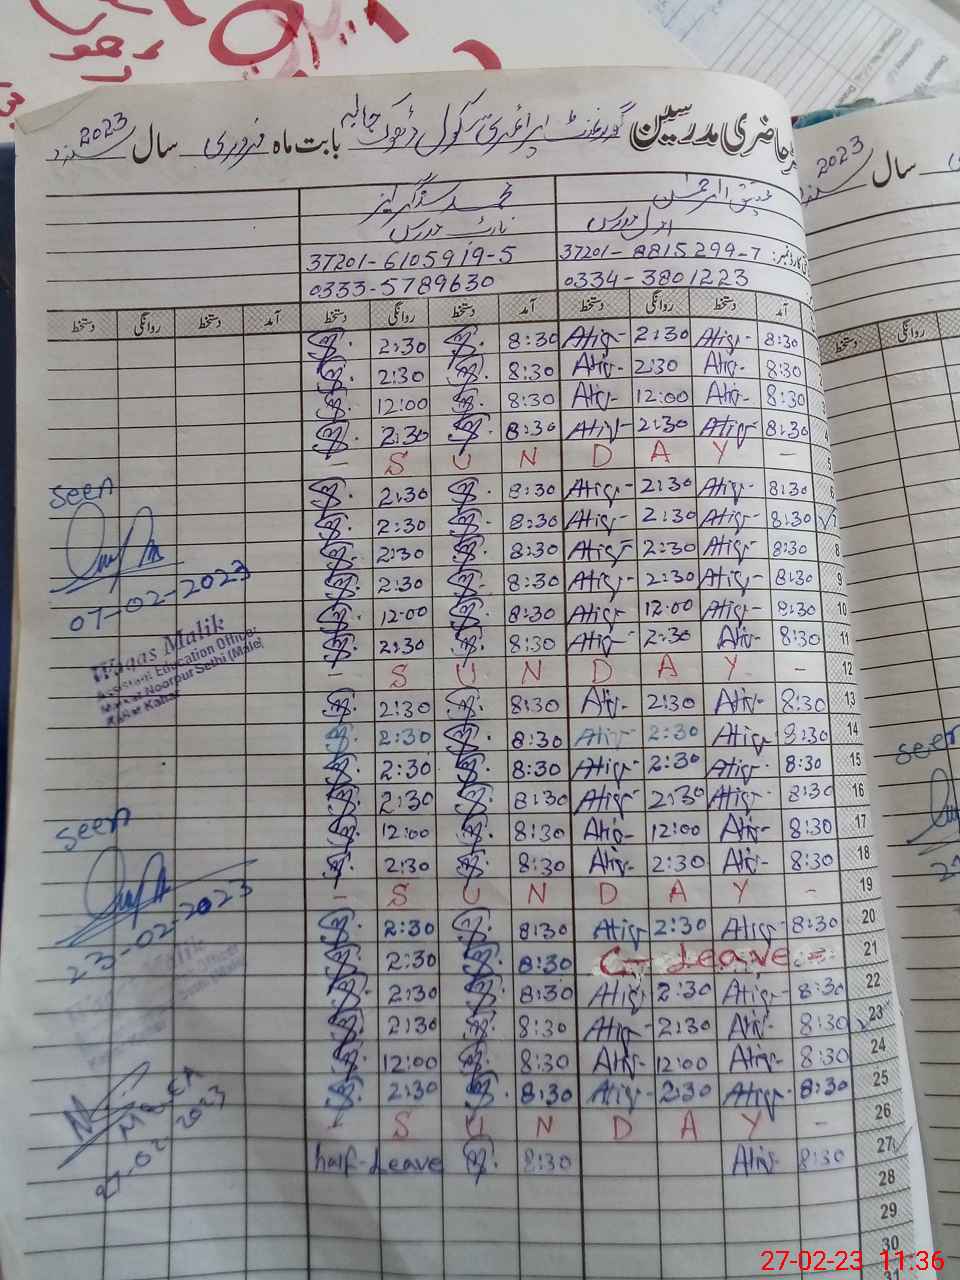 حاضری مدرسین گورنمنٹ پرائمری سکول ڈھوک بابت ماہ فروری سال 2023
37201-8815299-7 37201-6105919-5
0334-3801223 0333-5789630
آمد دستخط روانگی دستخط آمد دستخط روانگی دستخط آمد دستخط روانگی دستخط
8:30 Atiq 2:30 Atiq 8:30 2:30
8:30 Atiq 2:30 Atiq 8:30 2:30
8:30 Atiq 12:00 Atiq 8:30 12:00
4 8:30 Atiq 2:30 Atiq 8:30 2:30
5 - S U N D A Y -
6 8:30 Atiq 2:30 Atiq 8:30 2:30
7 8:30 Atiq 2:30 Atiq 8:30 2:30
8 8:30 Atiq 2:30 Atiq 8:30 2:30
9 8:30 Atiq 2:30 Atiq 8:30 2:30
10 8:30 Atiq 12:00 Atiq 8:30 12:00
11 8:30 Atiq 2:30 Atiq 8:30 2:30
12 - S U N D A Y -
13 8:30 Atiq 2:30 Atiq 8:30 2:30
14 8:30 Atiq 2:30 Atiq 8:30 2:30
15 8:30 Atiq 2:30 Atiq 8:30 2:30
16 8:30 Atiq 2:30 Atiq 8:30 2:30
17 8:30 Atiq 12:00 Atiq 8:30 12:00
18 8:30 Atiq 2:30 Atiq 8:30 2:30
19 - S U N D A Y -
20 8:30 Atiq 2:30 Atiq 8:30 2:30
21 C-Leave 8:30 2:30
22 8:30 Atiq 2:30 Atiq 8:30 2:30
23 8:30 Atiq 2:30 Atiq 8:30 2:30
24 8:30 Atiq 12:00 Atiq 8:30 12:00
25 8:30 Atiq 2:30 Atiq 8:30 2:30
26 - S U N D A Y -
27 8:30 Atiq 8:30 half-Leave
28
29
30
31
seen
07-02-2023
Waqas Malik
Assistant Education Officer
Markaz Noorpur Sethi (Male)
Kallar Kahar
seen
23-02-2023
MEA
27-02-2023
سال 2023
دستخط روانگی
seen
27-02-23 11:36